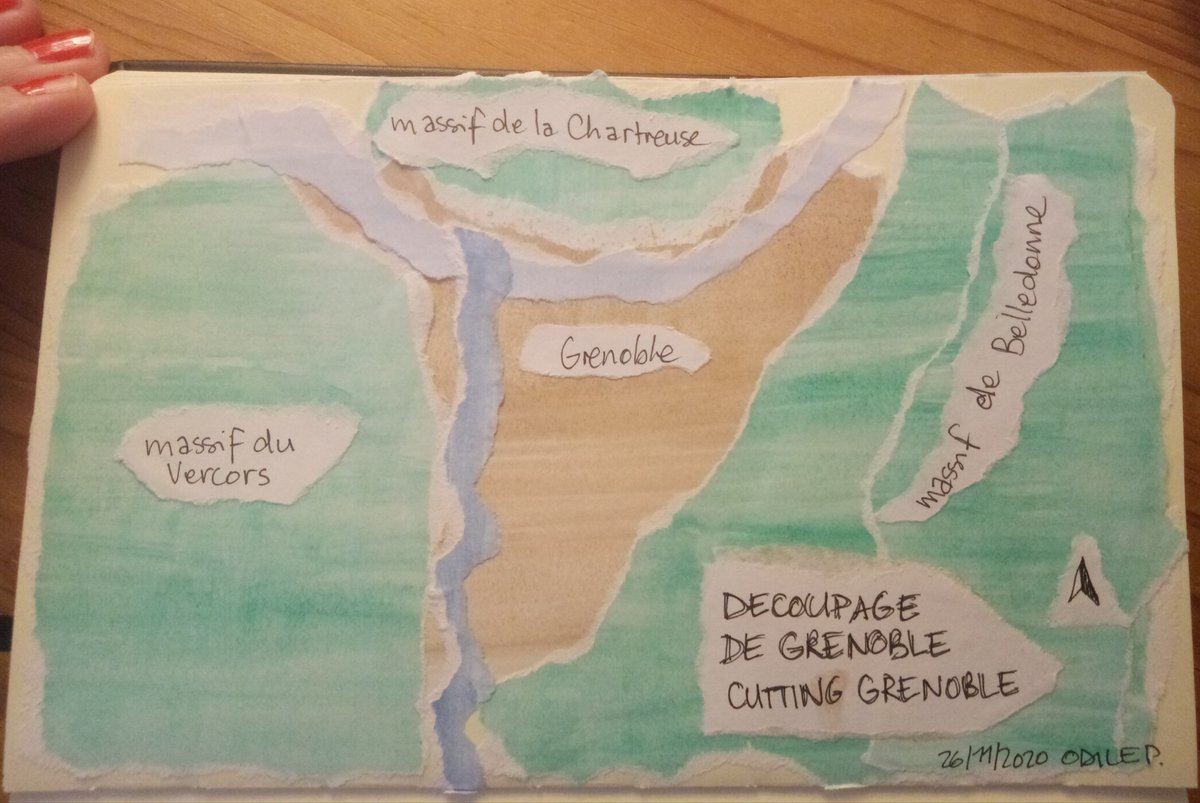 massif de la Chartreuse
Grenoble
massif de Belledonne
massif du
Vercors
DECOUPAGE
DE GRENOBLE
CUTTING GRENOBLE
26/11/2020 ODILE P.